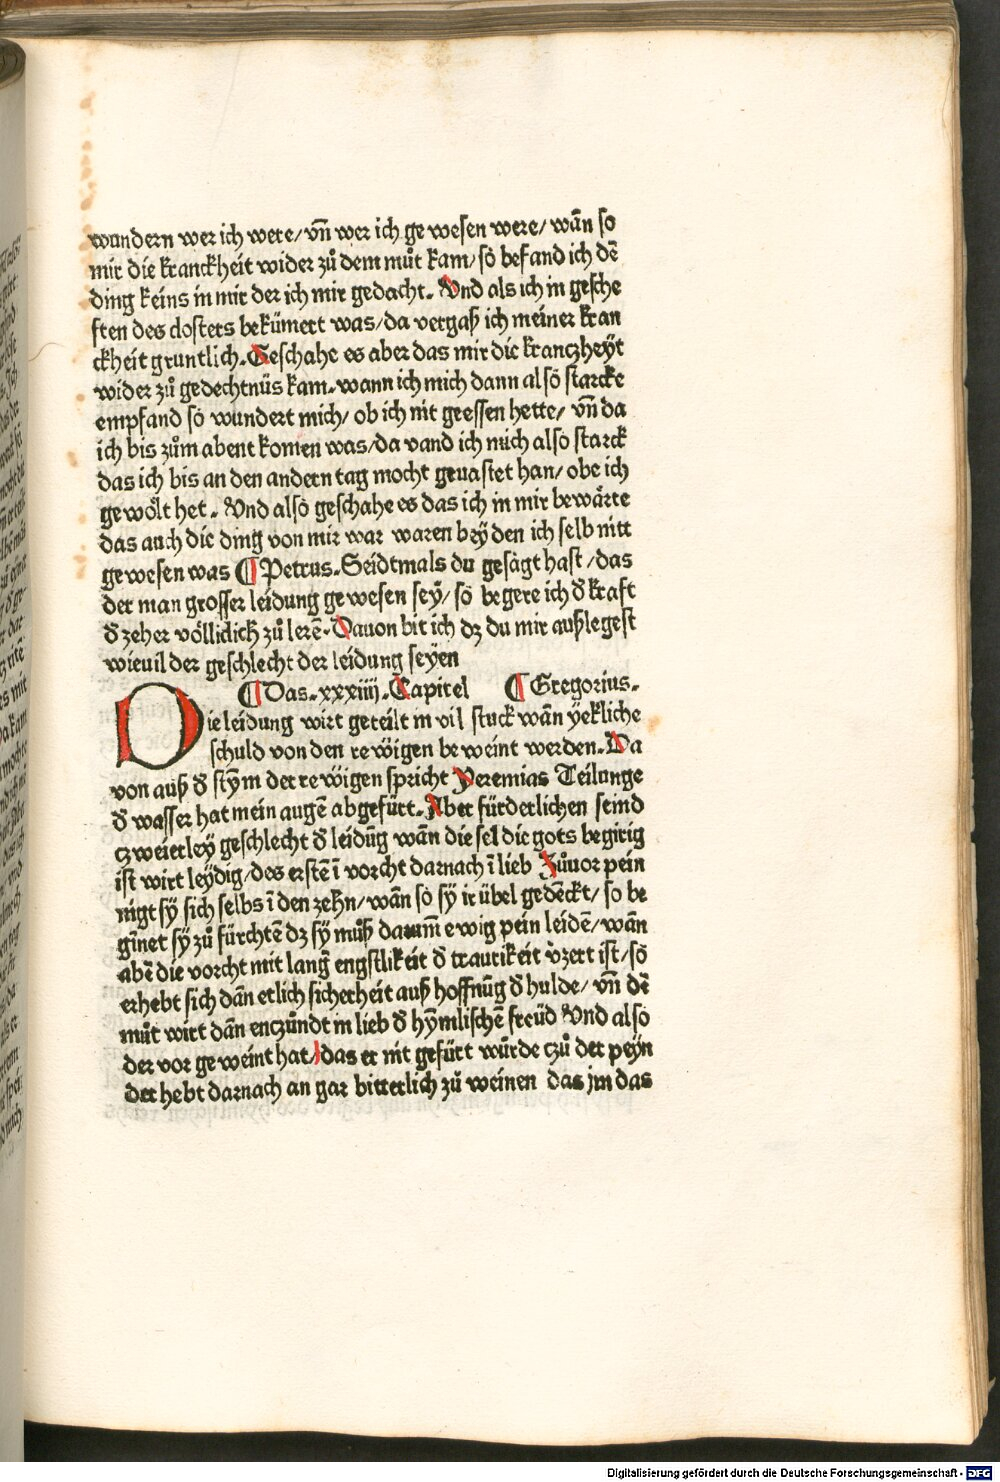 wundern wer ich were/ vn̄ wer ich ge wesen were/ wān so
mir die kranckheit wider zů dem můt kam/ so befand ich dē
ding keins in mir der ich mir gedacht. Vnd als ich in gesche
ften des closters bekümert was/ da vergaß ich meiner kran
ckheit gruntlich. Geschahe es aber das mir die kranczheyt
wider zů gedechtnüs kam. wann ich mich dann also starcke
empfand so wundert mich/ ob ich nit geessen hette/ vn̄ da
ich bis zům abent komen was/ da vand ich mich also starck
das ich bis an den andern tag mocht geuastet han/ obe ich
gewölt het. Vnd also geschahe es das ich in mir bewärte
das auch die ding von mir war waren bey den ich selb nitt
gewesen was ¶ Petrus. Seidtmals du gesagt hast/ das
der man grosser leidung gewesen sey/ so begere ich d̄ kraft
d̄ zeher völlidich zů lerē. Dauon bit ich dz du mir außlegest
wieuil der geschlecht der leidung seyen
¶ Das. xxxiiij. Capitel ¶ Gregorius.
Die leidung wirt geteilt in vil stuck wān yekliche
schuld von den rewigen beweint werden. Da
von auß d̄ stym̄ der rewigen spricht Yeremias Teilunge
d̄ wasser hat mein augē abgefürt. Aber fürderlichen seind
czweierley geschlecht d̄ leidūg wān die sel die gots begirig
ist wirt leydig/ des erstē ī vorcht darnach ī lieb Zůuor pein
nigt sy sich selbs ī den zehn/ wān so sy ir übel gedēckt/ so be
gīnet sy zů fürchtē dz sy můß darum̄ ewig pein leidē/ wān
abē die vorcht mit lanḡ engstlikeit d̄ traurikeit v̄zert ist/ so
erhebt sich dān etlich sicherheit auß hoffnūg d̄ hulde/ vn̄ dē
můt wirt dān enczündt in lieb d̄ hym̄lischē freüd Vnd also
der vor geweint hat/ das er nit gefürt würde czů der peyn
der hebt darnach an gar bitterlich zů weinen das jm das
Digitalisierung gefördert durch die Deutsche Forschungsgemeinschaft - DFG